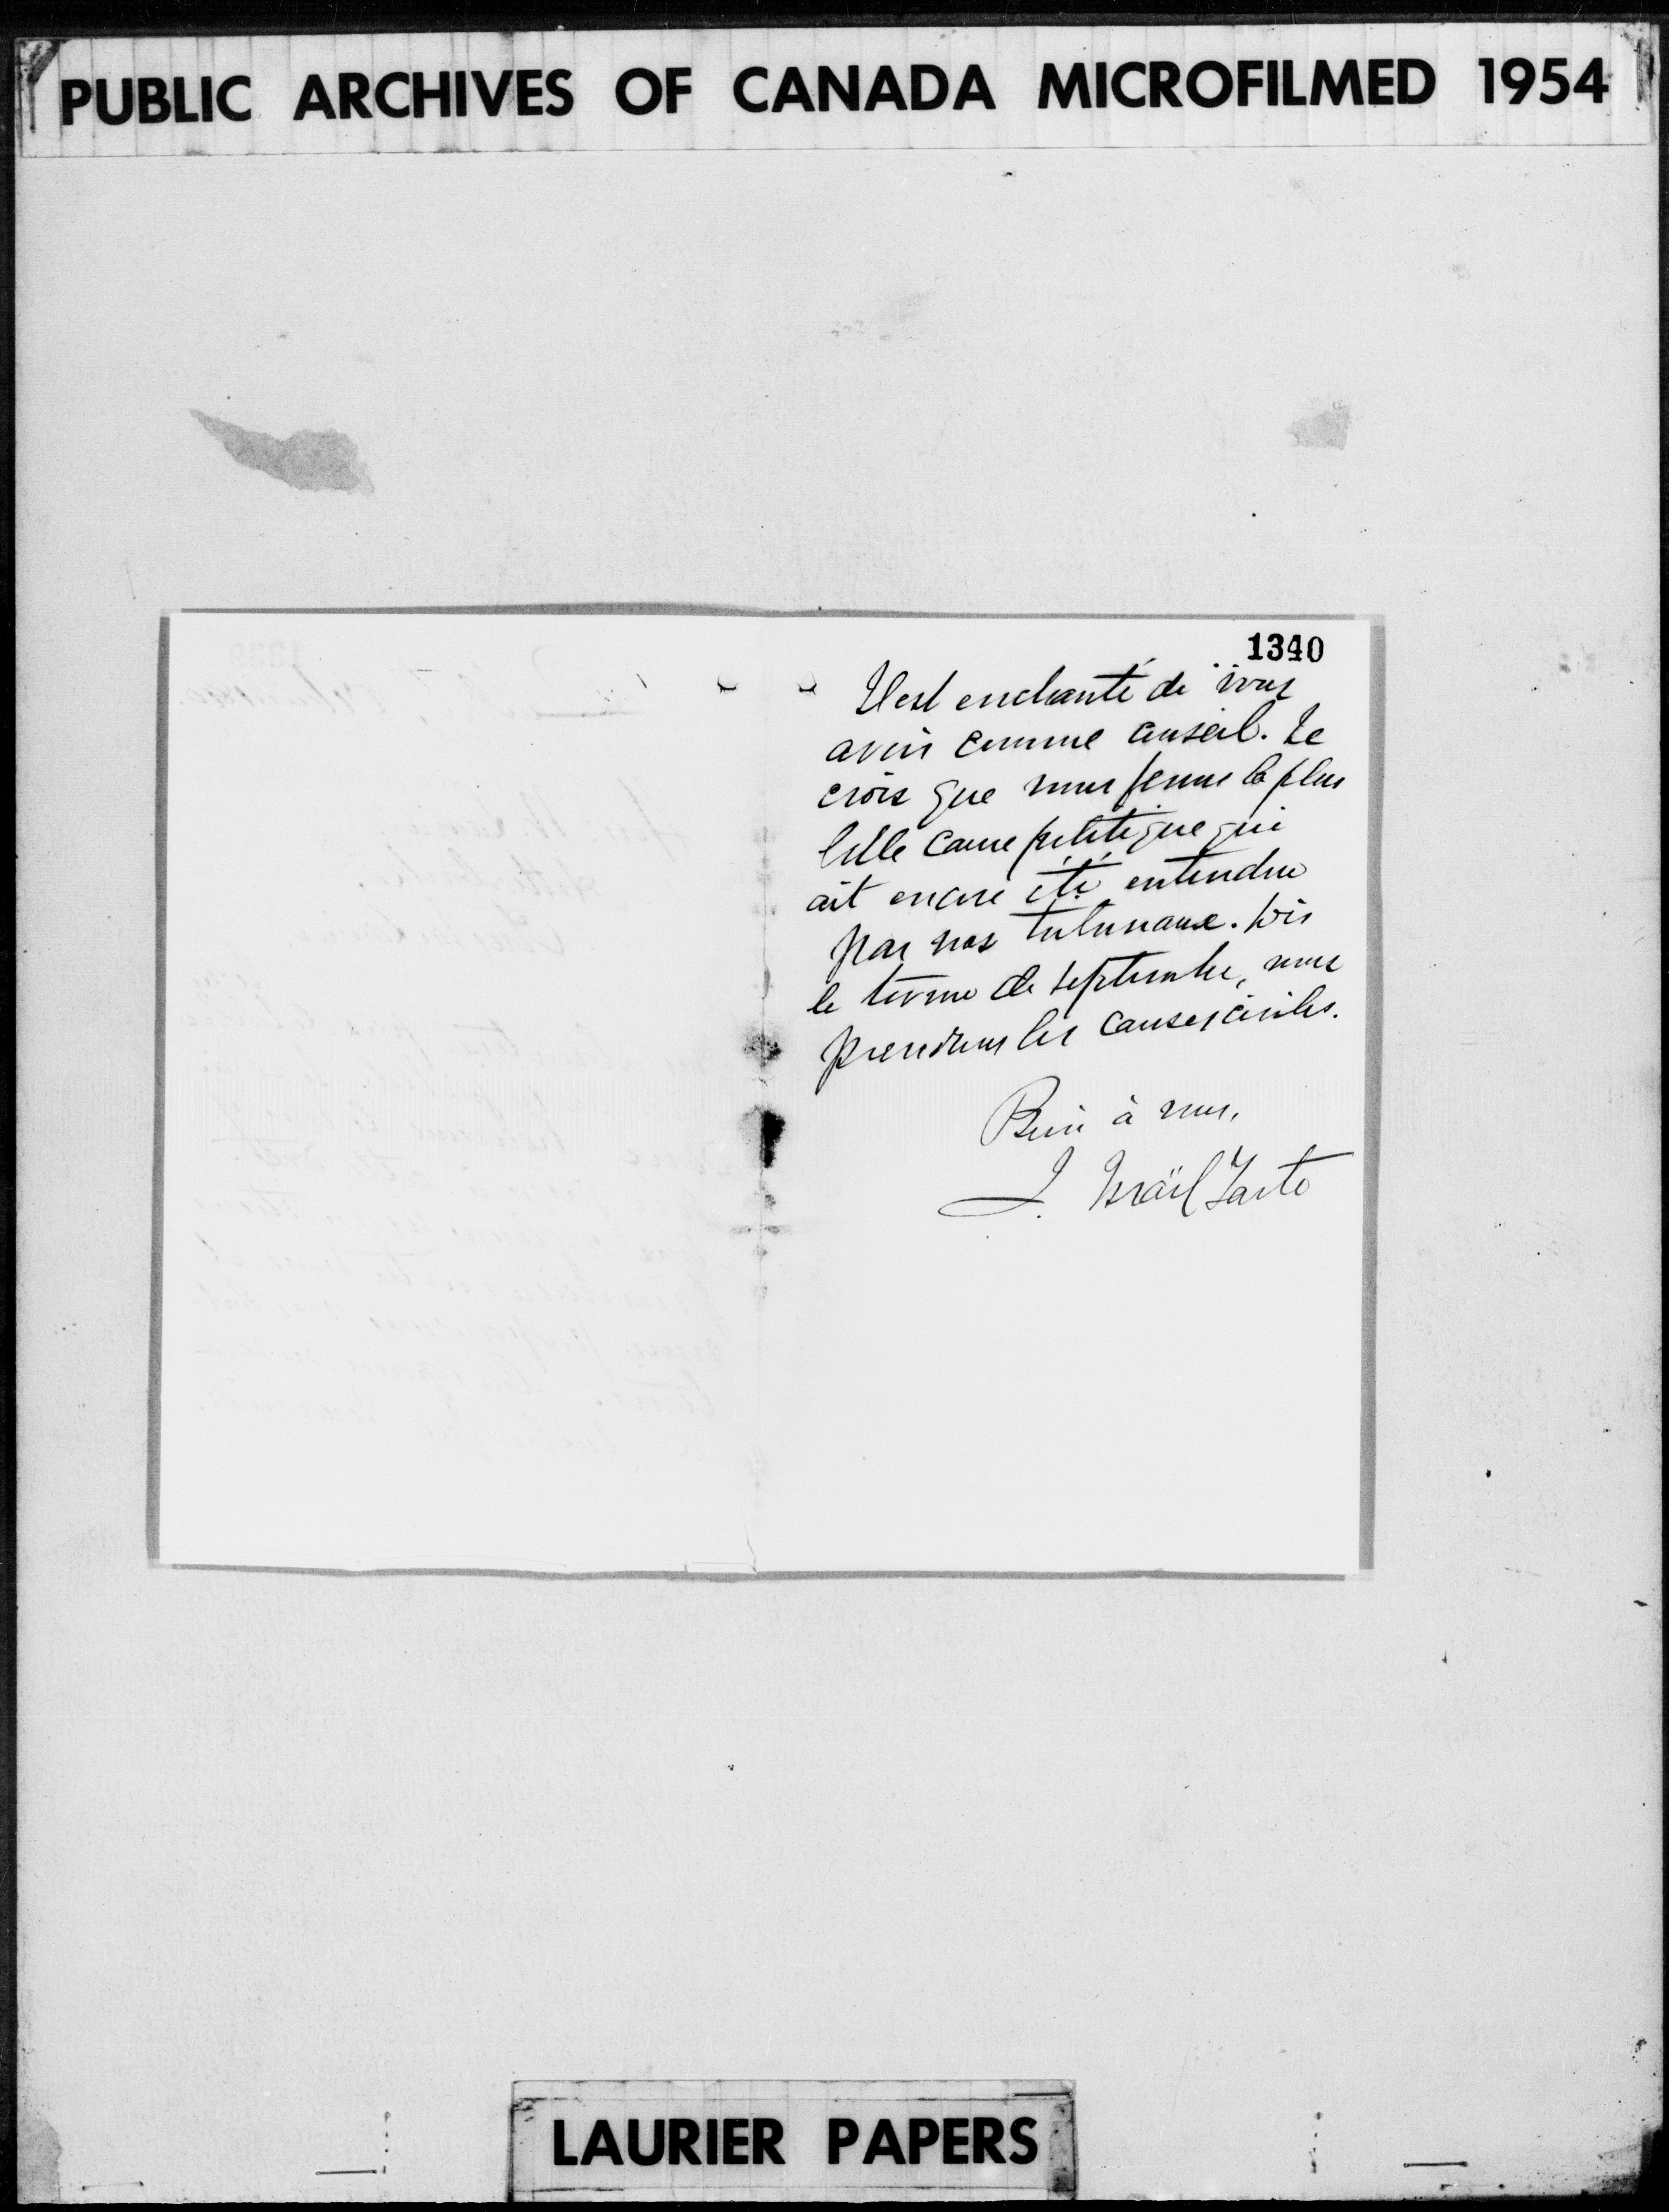 PUBLIC ARCHIVES OF CANADA MICROFILMED 1954
1340
Il est enchanté de vous
avoir comme conseil. Je
crois que nous ferons la plus
belle cause politique qui
ait encore été entendue
par nos tribunaux. Dès
le terme de septembre, nous
prendrons les causes civiles.
Bien à vous,
J. Israël Tarte
LAURIER PAPERS